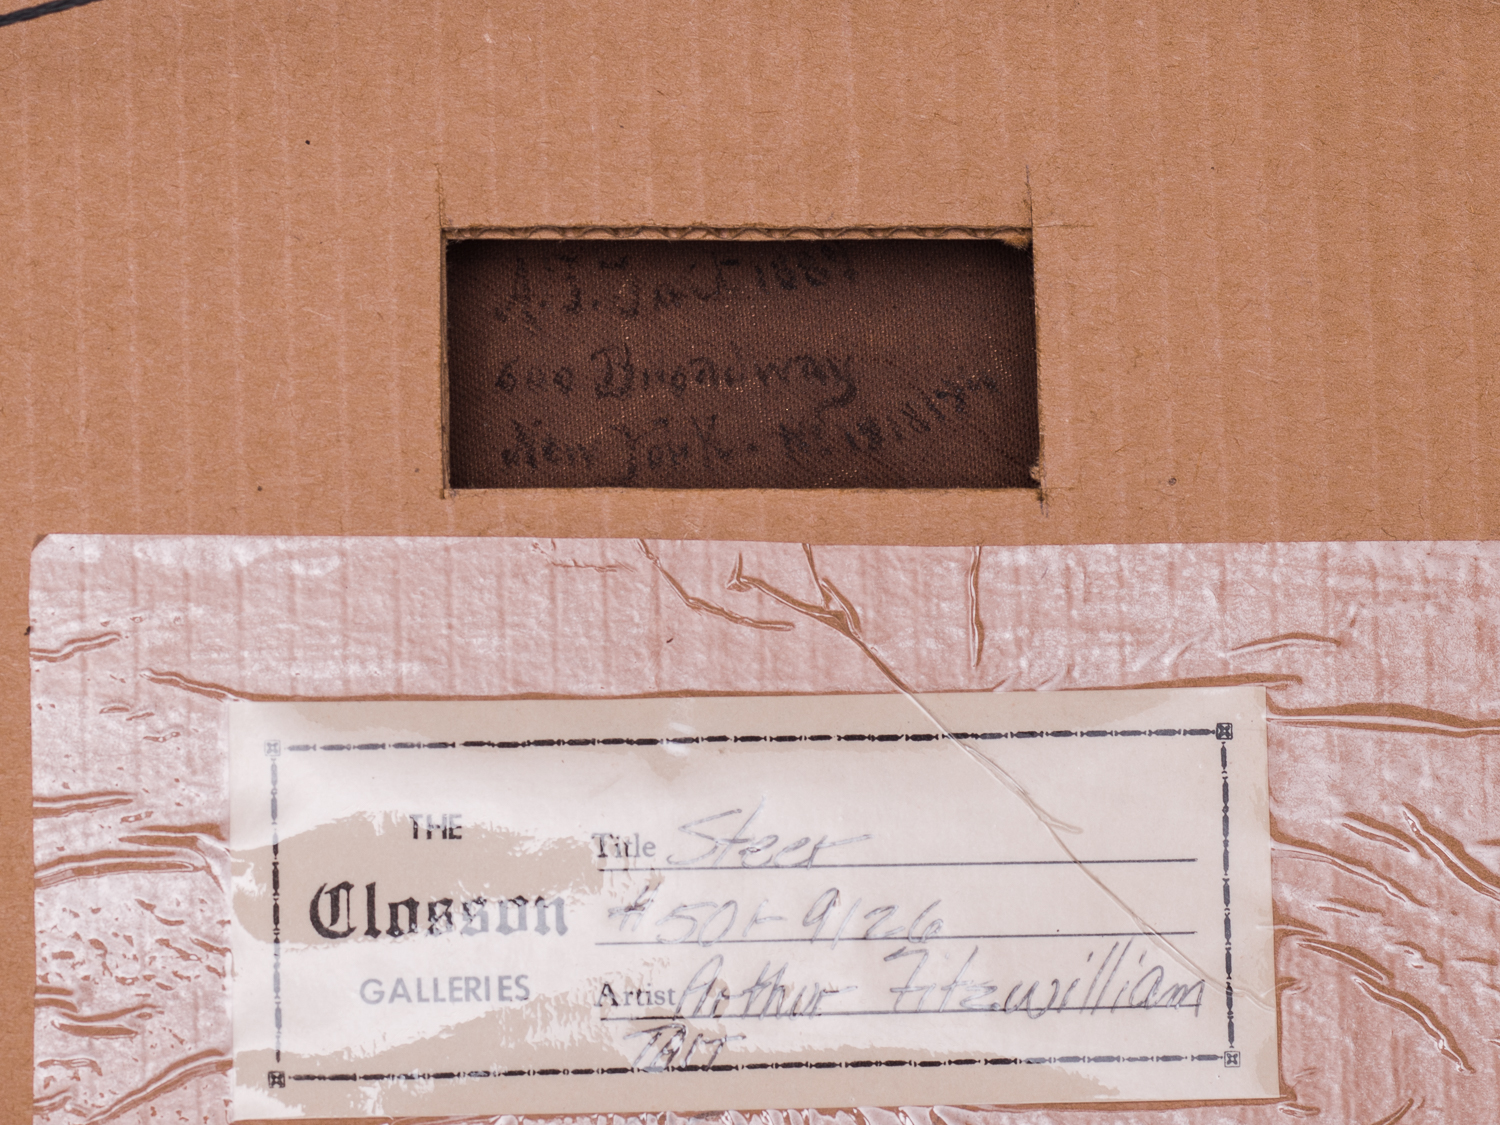 A.F. Tait 1867
600 Broadway
New York.
THE
Closson
GALLERIES
Title Steer
# 501-9126
Artist Arthur Fitzwilliam
TAIT